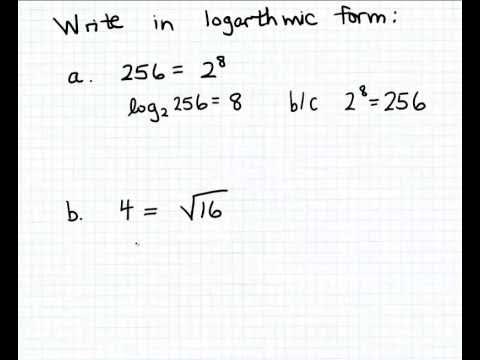 Write in logarthmic form:
a. 256 = 2⁸
log₂ 256 = 8 b/c 2⁸ = 256
b. 4 = √16